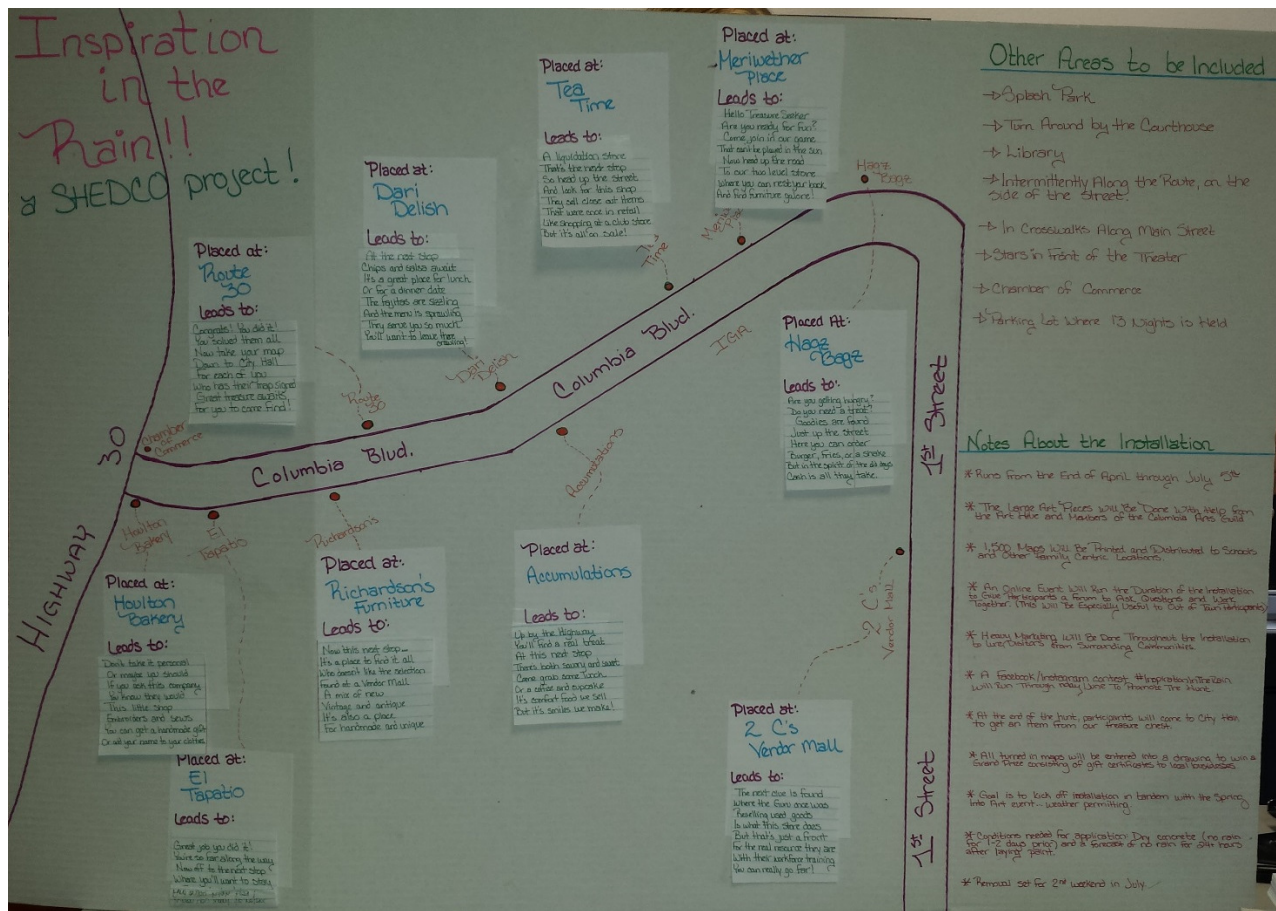 Inspiration
in the
Rain!!
a SHEDCO project!
Placed at:
Route
30
Leads to:
Congrats! You did it!
You solved them all
Now take your map
Down to City Hall
For each of you
Who has their map signed
Great treasure awaits
for you to come find!
Placed at:
Dari
Delish
Leads to:
At the next stop
Chips and salsa await
It's a great place for lunch
Or for a dinner date
The fajitas are sizzling
And the menu is sprawling
They serve you so much
You'll want to leave there
crawling!
Placed at:
Tea
Time
Leads to:
A liquidation store
That's the next stop
So head up the street
And look for this shop
They sell close out items
That were once in retail
Like shopping at a club store
But it's all on sale!
Placed at:
Meriwether
Place
Leads to:
Hello Treasure Seeker
Are you ready for fun?
Come join in our game
That can't be played in the sun
Now head up the road
To our two level store
Where you can rest your back
And find furniture galore!
Placed At:
Hagz
Bagz
Leads to:
Are you getting hungry?
Do you need a treat?
Goodies are found
Just up the street
Here you can order
Burger, fries, or a shake
But in the spirit of the old days
Cash is all they take.
Placed at:
Houlton
Bakery
Leads to:
Don't take it personal
Or maybe you should
If you ask this company
You know they would
This little shop
Embroiders and sews
You can get a handmade gift
Or add your name to your clothes
Placed at:
El
Tapatio
Leads to:
Great job you did it!
You're so far along the way
Now off to the next stop
Where you'll want to stay
Placed at:
Richardson's
Furniture
Leads to:
Now this next stop...
It's a place to find it all
Who doesn't like the selection
Found at a Vendor Mall
A mix of new
Vintage and antique
It's also a place
For handmade and unique
Placed at:
Accumulations
Leads to:
Up by the Highway
You'll find a real treat
At this next stop
There's both savory and sweet
Come grab some lunch
Or a coffee and cupcake
It's comfort food we sell
But it's smiles we make!
Placed at:
2 C's
Vendor Mall
Leads to:
The next clue is found
Where the Guru once was
Reselling used goods
Is what this store does
But that's just a front
For the real resource they are
With their workforce training
You can really go far!
HIGHWAY 30
Chamber
of
Commerce
Houlton
Bakery
El
Tapatio
Route
30
Richardson's
Dari
Delish
Time
Hagz
Bagz
IGA
2 C's
Vendor Mall
Columbia Blvd.
Columbia Blvd.
1st Street
1st Street
Other Areas to be Included
→ Splash Park
→ Turn Around by the Courthouse
→ Library
→ Intermittently Along the Route, on the
side of the Street.
→ In Crosswalks Along Main Street
→ Stars in Front of the Theater
→ Chamber of Commerce
→ Parking Lot Where 13 Nights is Held
Notes About the Installation
* Runs from the End of April through July 5th
* The Large Art Pieces Will Be Done With Help from
the Art Hive and Members of the Columbia Arts Guild
* 1,500 Maps Will Be Printed and Distributed to Schools
and Other Family Centric Locations.
* An Online Event Will Run the Duration of the Installation
to Give Participants a Forum to Ask Questions and Work
Together (This Will Be Especially Useful to Out of Town Participants)
* Heavy Marketing Will Be Done Throughout the Installation
to Lure Visitors From Surrounding Communities.
* A Facebook/Instagram contest #InspirationInTheRain
Will Run Through May/June To Promote The Hunt.
* At the end of the hunt, participants will come to City Hall
to get an item from our treasure chest.
* All turned in maps will be entered into a drawing to win a
Grand Prize consisting of gift certificates to local businesses
* Goal is to kick off installation in tandem with the Spring
into Art event... weather permitting.
* Conditions needed for application: Dry concrete (no rain
for 1-2 days prior) and a forecast of no rain for 24 hours
after laying paint.
* Removal set for 2nd weekend in July